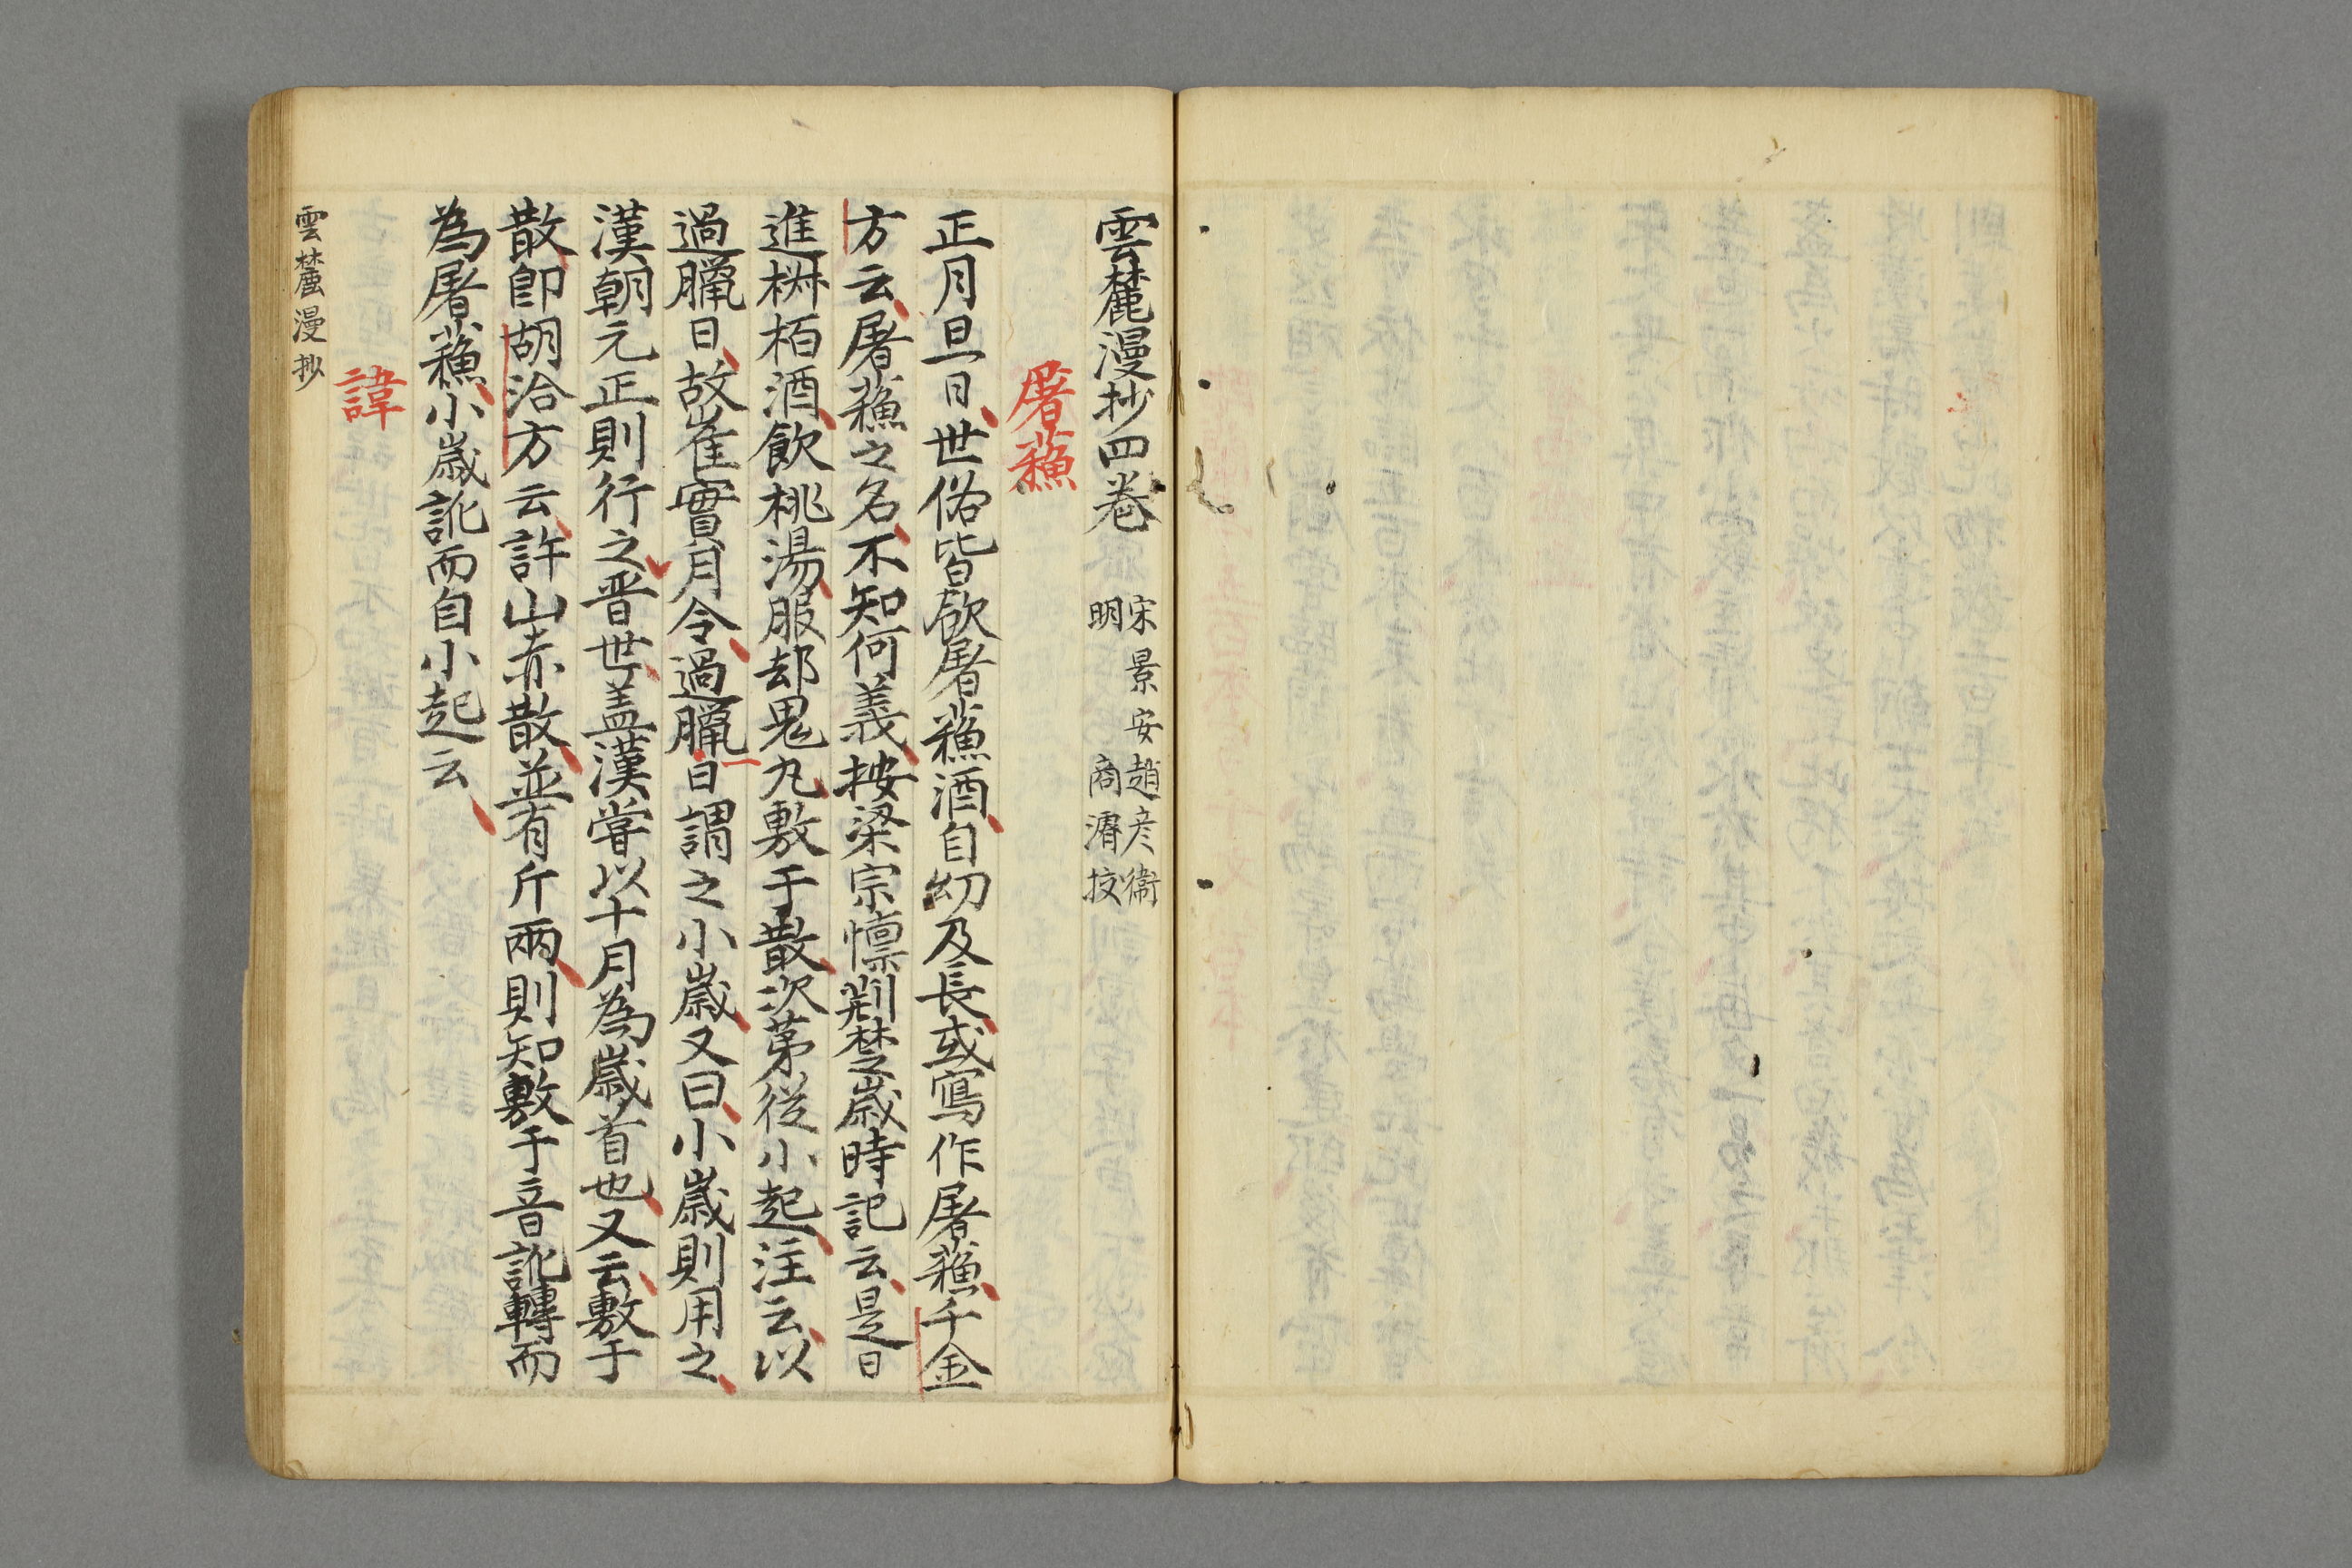 雲麓漫抄四卷
宋景安趙彥衛
明　商濬挍
屠蘓
正月旦日世俗皆飲屠蘓酒自幼及長或寫作屠蘓千金
方云屠蘓之名不知何義按梁宗懍荆楚歲時記云是日
進椒栢酒飲桃湯服却鬼丸敷于散次苐從小起注云以
過臘日故崔寔月令過臘一日謂之小歲又曰小歲則用之
漢朝元正則行之晋世盖漢嘗以十月為歲首也又云敷于
散即胡洽方云許山赤散並有斤兩則知敷于音訛轉而
為屠蘓小歲訛而自小起云
諱
雲麓漫抄